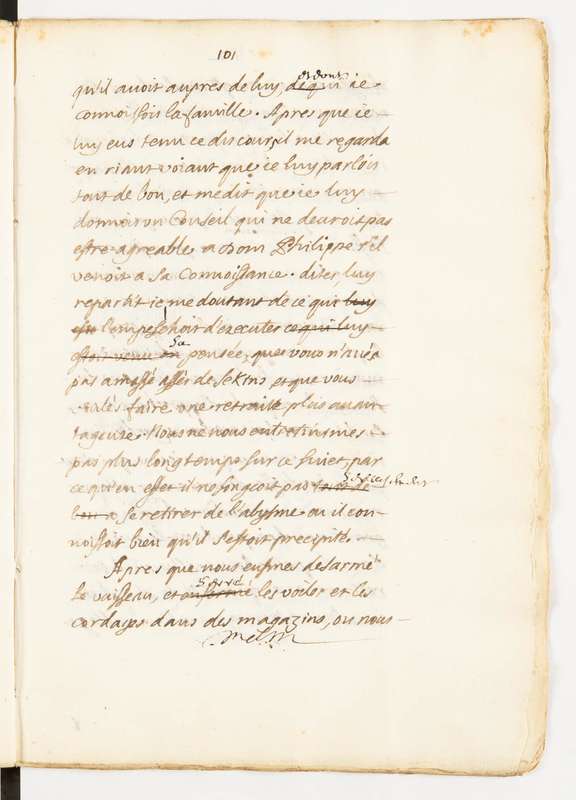 101
qu'il avoit aupres de luy, de qui et dont ie
connoissois la famille. Apres que ie
luy eus tenu ce discours, il me regarda
en riant voiant que ie luy parlois
tout de bon, et me dit que ie luy
donnois un Conseil qui ne devroit pas
estre agreable a Dom Philippe s'il
venoit a sa Connoissance. dites, luy
repartit ie, me doutant de ce qui luy
l'empeschoit d'executer ce qui luy
estoit venu en Sa pensée, que vous n'avés
pas amassé assés de Sekins et que vous
voulés faire une retraite plus avan
tageuse. Nous ne nous entretinsmes
pas plus longtemps sur ce suiet, par
ce qu'en effet il ne songeoit pas
bon a se retirer de l'abysme ou il con
noissoit bien qu'il s'estoit precipité.
Apres que nous eusmes desarmé
le vaisseau, et enfermé Serré les voiles et les
cordages dans des magazins, ou nous